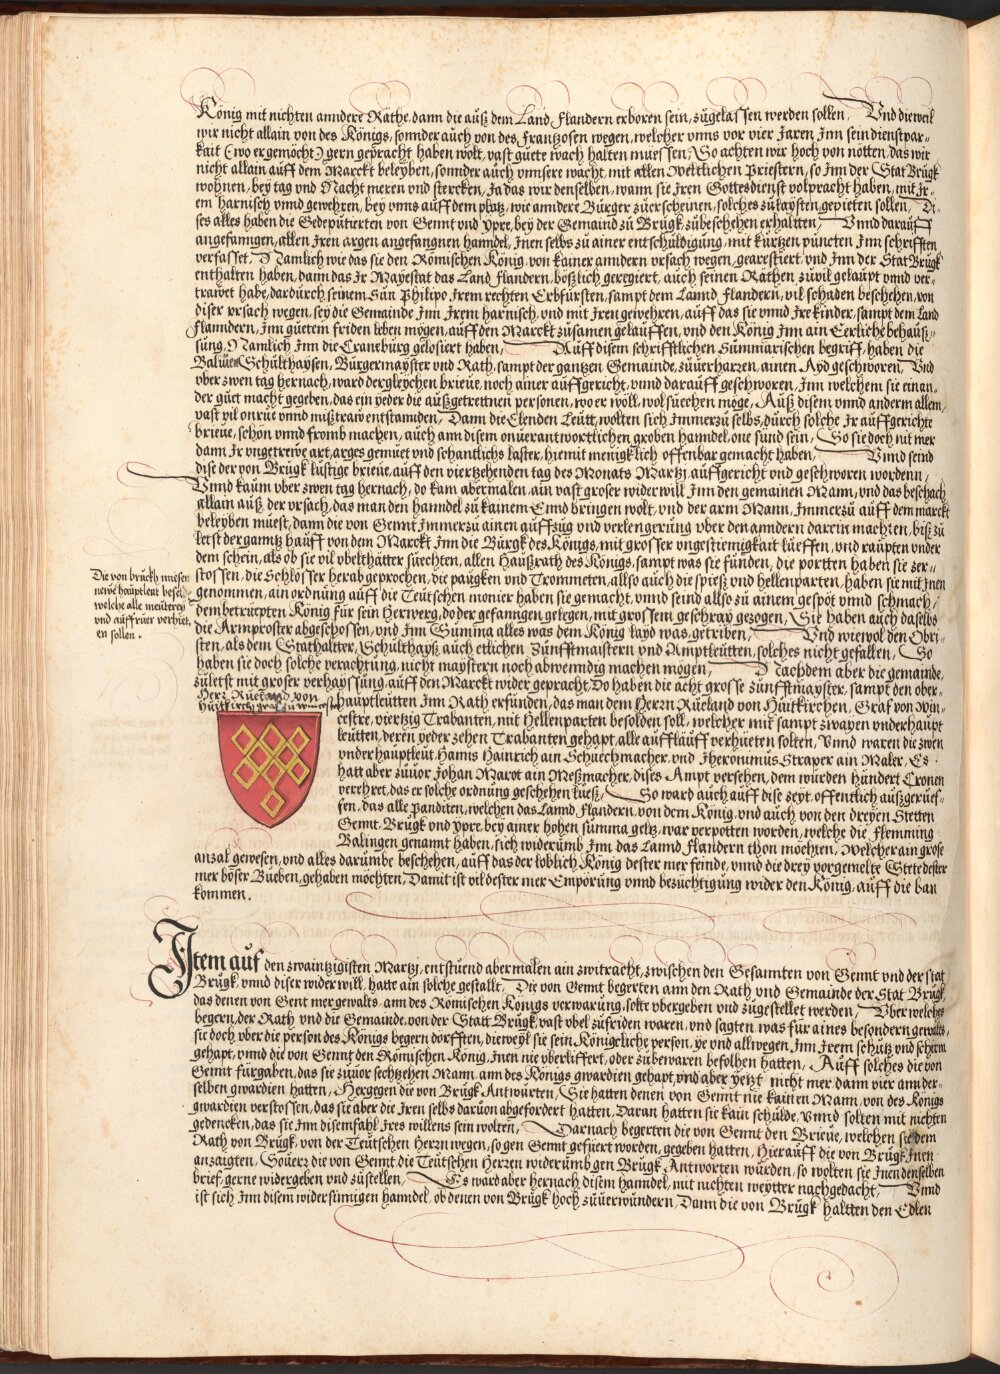 König mit nichten anndere Räthe, dann die auß dem Land Flandern erboren sein, zugelassen werden sollen, Vnd dieweil
wir nicht allain von des Königs, sonnder auch von des Frantzosen wegen, welcher vnns vor vier Jaren Inn sein dienstpar-
kait (wo er gemöcht) gern gepracht haben wolt, vast guete wach halten muessen, So achten wir hoch von nötten, das wir
nicht allain auff dem Marckt beleyben, sonnder auch vnnsere wacht, mit allen Weltlichen Priestern, so Inn der Stat Brugk
wohnen, bey tag vnd Nacht meren vnd stercken, Ja das wir denselben, wann sie Iren Gottesdienst volpracht haben, mit Ir-
em harnisch vnnd gewehren, bey vnns auff dem platz, wie anndere Bürger zuerscheinen, solches zulaysten, gepieten sollen, Di-
ses alles haben die Gedeputierten von Gennt vnd Ypre, bey der Gemaind zu Brugk zubeschehen erhaltten, Vnnd darauff
angefanngen, allen Iren argen angefangnen hanndel, Inen selbs zu ainer entschuldigung, mit kurtzen puncten Inn schrifften
verfasset, Namlich wie das sie den Römischen König, von kainer anndern vrsach wegen, gearestiert, vnd Inn der Stat Brugk
enthalten haben, dann das Ir Mayestat das Land Flandern, bößlich geregiert, auch seinen Räthen zuvil gelaupt vnnd ver-
trawet habe, dardurch seinem Sun Philipo, Irem rechten Erbfürsten, sampt dem Lannd Flandern, vil schaden beschehen, von
diser vrsach wegen, sey die Gemainde Inn Irem harnisch, vnd mit Iren gewehren, auff das sie vnnd Ire kinder, sampt dem Land
Flanndern, Inn guetem friden leben mögen, auff den Marckt zusamen gelauffen, vnd den König Inn ain Eerliche behauß-
sung, Namlich Inn die Craneburg gelosiert haben, Auff disem schrifftlichen Summarischen begriff, haben die
Baliuen Schulthaysen, Burgermayster vnd Rath, sampt der gantzen Gemainde, zuuerharren, ainen Ayd geschworen, Vnd
vber zwen tag hernach, ward dergleychen brieue, noch ainer auffgericht, vnnd darauff geschworen, Inn welchem sie einan-
der guet macht gegeben, das ein yeder die außgetrettnen personen, wo er wöll, wol suechen möge, Auß disem vnnd anderm allem,
vast vil onrüe vnnd mißtraw entstannden, Dann die Elenden Leutt, wolten sich Immerzu selbs, durch solche Ir auffgerichte
brieue, schön vnnd fromb machen, auch ann disem onuerantwortlichen groben hanndel, one sünd sein, So sie doch nit mer
dann Ir vngetrewe art, arges gemuet vnd schanntlichs laster, hiemit menigklich offenbar gemacht haben, Vnnd seind
dise der von Brugk lustige brieue, auff den viertzehenden tag des Monats Martzj, auffgericht vnd geschworen wordenn,
Vnnd kaum vber zwen tag hernach, do kam abermalen, ain vast groser widerwill Inn den gemainen Mann, vnd das beschach
allain auß der vrsach, das man den hanndel zu kainem Ennd bringen wolt, vnd der arm Mann, Immerzu auff dem marckt
beleyben müest, dann die von Gennt Immerzu ainen auffzug vnd verlengerung vber den anndern darein machten, biß zu
letst der gantz hauff von dem Marckt Inn die Burgk des Königs, mit grosser vngestiemigkait lueffen, vnd raupten vnder
dem schein, als ob sie vil vbelthätter suechten, allen Haußrath des Königs, sampt was sie funden, die portten haben sie zer-
stossen, die Schlösser herab geprochen, die paugken vnd Trommeten, allso auch die spieß vnd hellenparten, haben sie mit Inen
genommen, ain ordnung auff die Teutschen monier haben sie gemacht, vnnd seind allso zu ainem gespöt vnnd schmach,
dem betruepten König für sein Herwerg, do der gefanngen gelegen, mit grossem geschray gezogen, Sie haben auch daselbs
die Armproster abgeschossen, vnd Inn Summa alles was dem König layd was, getriben, Vnd wiewol den Obri-
sten, als dem Stathalter, Schulthayß, auch etlichen Zunfftmaistern vnd Amptleutten, solches nicht gefallen, So
haben sie doch solche verachtung, nicht maystern noch abwenndig machen mögen, Nachdem aber die gemainde,
zuletst mit groser verhayssung, auff den Marckt wider gepracht, Do haben die acht grosse zunfftmayster, sampt den ober-
Die von brückh muesen
newe hauptleut besol-
welche alle meüterey
vnd auffruer verhüt-
en sollen.
Herr Rueland von
hauptleutten Inn Rath erfunden, das man dem Herrn Rueland von Huitkirchen, Graf von Win-
cestre, viertzig Trabanten, mit Hellenparten besolden soll, welcher mit sampt zwayen vnderhaupt
leutten, deren yeder zehen Trabanten gehapt, alle auffläuff verhueten solten, Vnnd waren die zwen
vnderhauptleut, Hanns Hainrich ain Schuechmacher, vnd Jheronimus Straper ain Maler, Es
hatt aber zuuor Johan Marot ain Meßmacher, dises Ampt versehen, dem wurden hundert Cronen
verehret, das er solche ordnung geschehen ließ, So ward auch auff dise zeyt, offentlich außgeruef-
fen, das alle Panditen, welchen das Lannd Flandern, von dem König, vnd auch von den dreyen Stetten
Gennt, Brugk vnd Ypre, bey ainer hohen summa geltz, war verpotten worden, welche die Flemming
Balingen genannt haben, sich widerumb Inn das Lannd Flandern thon möchten, Welcher ain grose
anzal gewesen, vnd alles darumbe beschehen, auff das der loblich König dester mer feinde, vnnd die drey vorgemelte Stete dester
mer böser Bueben, gehaben möchten, Damit ist vil dester mer Empörung vnnd bezüchtigung wider den König, auff die ban
kommen.
Item auf den zwaintzigisten Martzj, entstuend aber malen ain zwitracht, zwischen den Gesannten von Gennt vnd der stat
Brugk, vnnd diser widerwill, hatte ain solche gestallt, Die von Gennt begerten ann den Rath vnd Gemainde der Stat Brugk
das denen von Gent mer gewalts, ann des Römischen Königs verwarung, solte vbergeben vnd zugestellet werden, Vber welches
begern, der Rath vnd die Gemainde, von der Statt Brugk, vast vbel zufriden waren, vnd sagten was für aines besondern gewalts,
sie doch vber die person des Königs begern dörfften, dieweyl sie sein Königeliche person, ye vnd allwegen, Inn Irem schutz vnd schirm
gehapt, vnnd die von Gennt den Römischen König, Inen nie vberliffert, oder zubewaren befolhen hatten, Auff solches die von
Gennt fürgaben, das sie zuuor sechtzehen Mann, ann des Königs gwardien gehapt, vnd aber yetzt nicht mer dann vier ann der-
selben gwardien hatten, Hergegen die von Brugk Antwurten, Sie hatten denen von Gennt nie kainen Mann, von des Königs
gwardien verstossen, das sie aber die Iren selbs daruon abgefordert hatten, Daran hatten sie kain schulde, Vnnd solten mit nichten
gedencken, das sie Inn disem fahl Ires willens sein wolten, Darnach begerten die von Gennt den Brieue, welchen sie dem
Rath von Brugk, von der Teutschen Herrn wegen, so gen Gennt gefüert worden, gegeben hatten, Hierauff die von Brugk Inen
anzaigten, Souerr die von Gennt die Teutschen Herren widerumb gen Brugk Antworten wurden, so wolten sie Inen denselben
brief, gerne widergeben vnd zustellen, Es ward aber hernach disem hanndel, mit nichten weytter nachgedacht, Vnnd
ist sich Inn disem widersinnigen hanndel, ob denen von Brugk hoch zuuerwundern, Dann die von Brugk haltten den Edlen